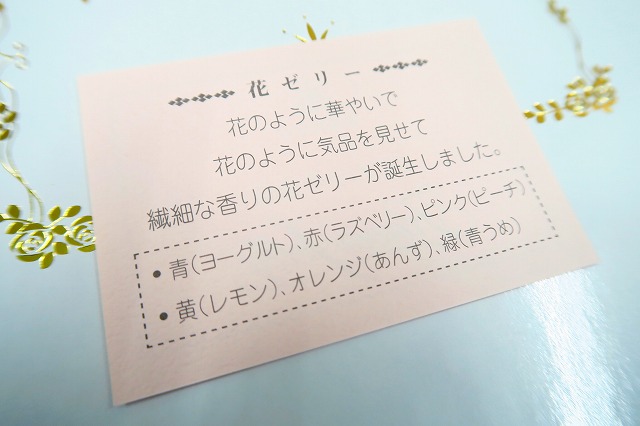 花ゼリー
花のように華やいで
花のように気品を見せて
繊細な香りの花ゼリーが誕生しました。
●青(ヨーグルト)、赤(ラズベリー)、ピンク(ピーチ)
●黄(レモン)、オレンジ(あんず)、緑(青うめ)